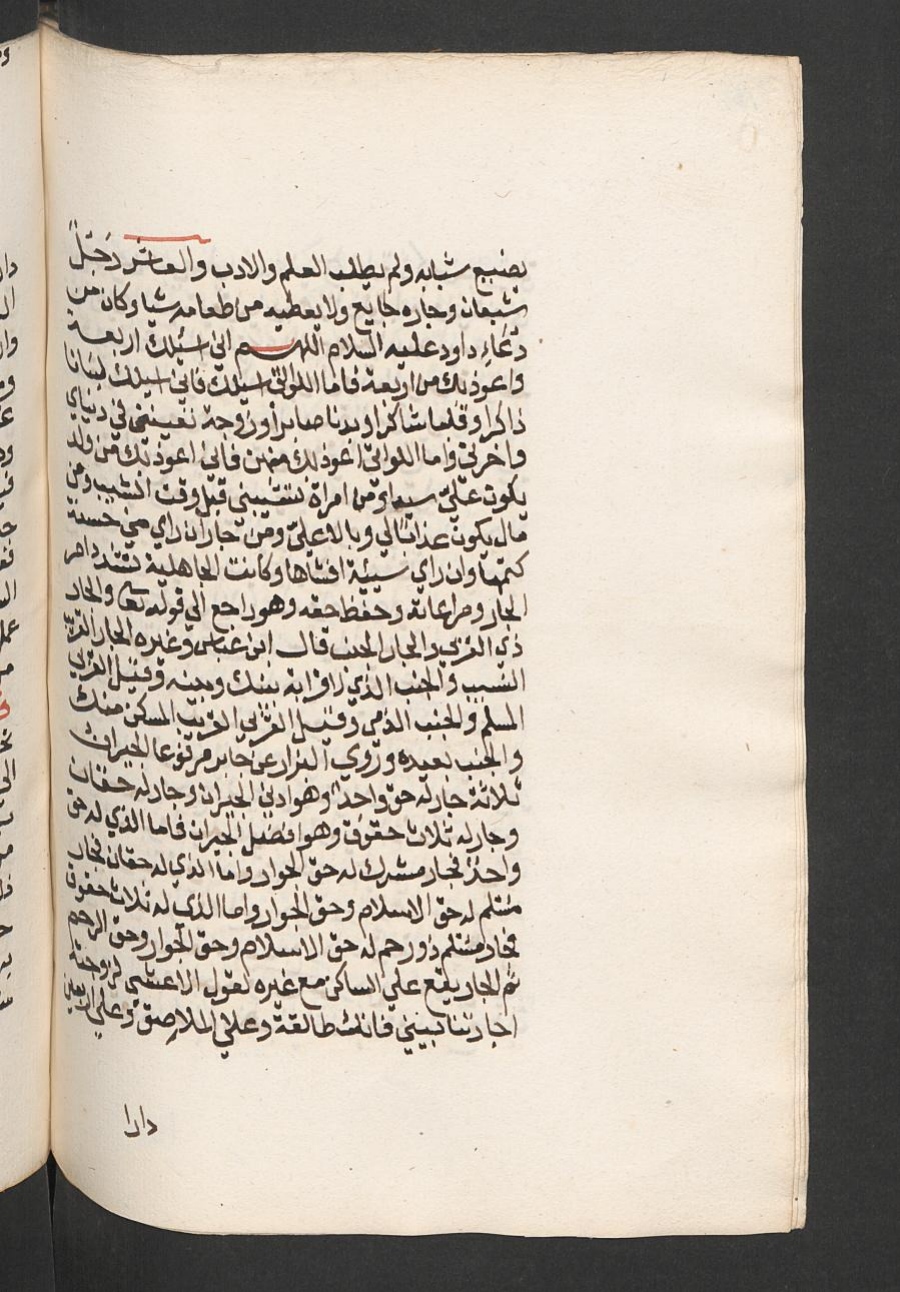 يضيع شبابه ولم يطلب العلم والادب والعاشر رجل
شبعان وجاره جايع ولا يعطيه من طعامه شيا وكان من
دعاء داود عليه السلام اللهم اني اسيلك اربعة
واعوذ بك من اربعة فاما اللواتي اسيلك فاني اسيلك لسانا
ذاكرا وقلبا شاكرا وبدنا صابرا وزوجة تعينني في دنياي
واخرتي واما اللواتي اعوذ بك منهن فاني اعوذ بك من ولد
يكون علي سيدا ومن امراة تشيبني قبل وقت الشيب ومن
مال يكون عذابا لي وبالا علي ومن جار ان راي مني حسنة
كتمها وان راي سيئة افشاها وكانت الجاهلية تشدد امر
الجار ومراعاته وحفظ حقه وهو راجع الي قوله تعا والجار
ذي القربي والجار الجنب قال ابن عباس وغيره الجار القريب
النسب والجنب الذي لا قرابة بينك وبينه وقيل القربي
المسلم والجنب الذمي وقيل القربي القريب المسكن منك
والجنب بعيده وروي البزار عن جابر مرفوعا الجيران
ثلاثة جار له حق واحد وهو ادني الجيران وجار له حقان
وجار له ثلاث حقوق وهو افضل الجيران فاما الذي له حق
واحد فجار مشرك له حق الجوار واما الذي له حقان فجار
مسلم له حق الاسلام وحق الجوار واما الذي له ثلاث حقوق
فجار مسلم ذو رحم له حق الاسلام وحق الجوار وحق الرحم
ثم الجار يقع علي الساكن مع غيره لقول الاعشي لزوجته
اجارتنا بيني فانك طالقة وعلي الملاصق وعلي اربعين
دارا